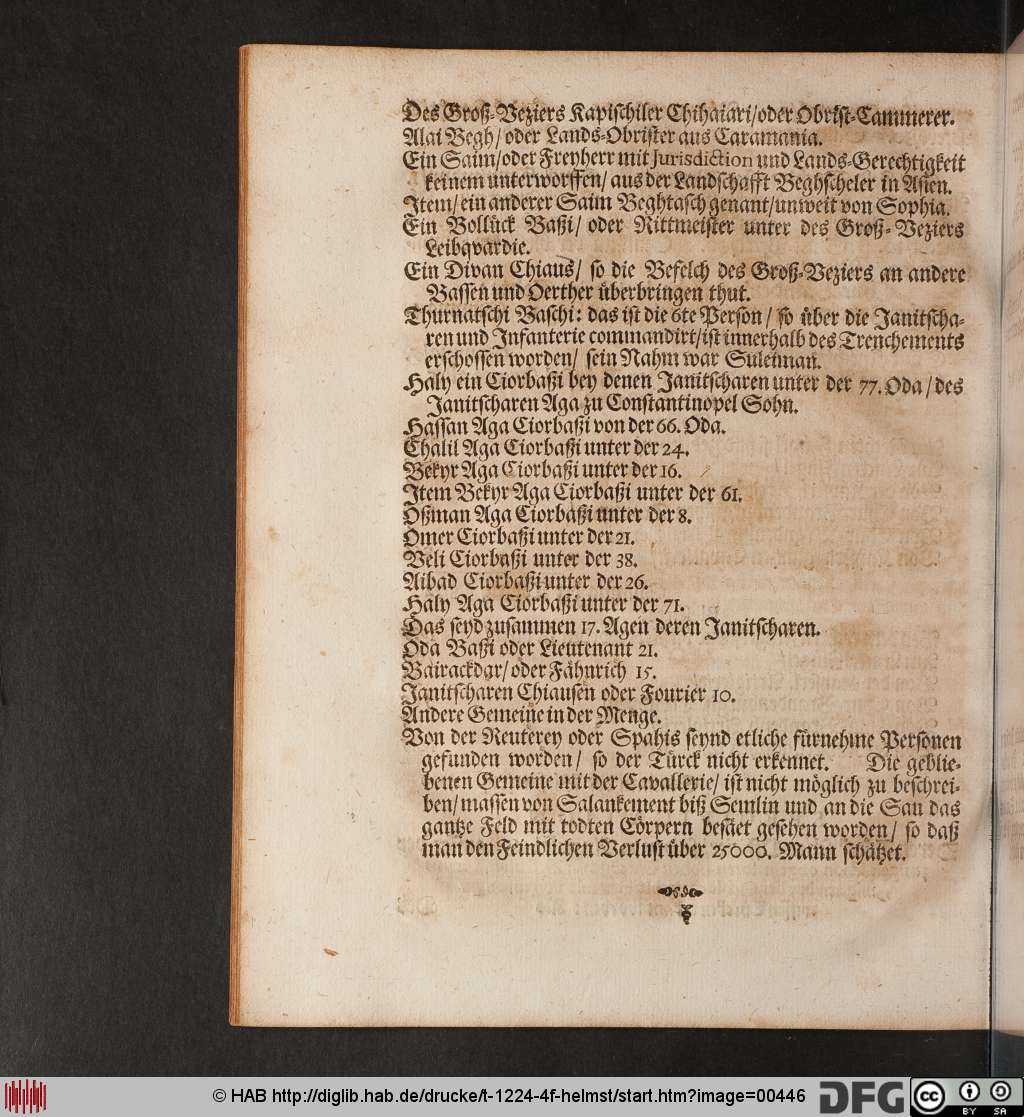 Des Groß-Veziers Kapischiler Chihaiari/oder Obrist-Cammerer.
Alai Begh/ oder Lands-Obrister aus Caramania.
Ein Saim/oder Freyherr mit Jurisdiction und Lands-Gerechtigkeit
keinem unterworffen/ aus der Landschafft Beghscheler in Asien.
Item/ein anderer Saim Beghtasch genant/unweit von Sophia.
Ein Bollück Baßi/ oder Rittmeister unter des Groß-Veziers
Leibqvardie.
Ein Divan Chiaus/ so die Befelch des Groß-Veziers an andere
Bassen und Oerther überbringen thut.
Thurnatschi Baschi: das ist die 6te Person/ so über die Janitscha-
ren und Infanterie commandirt/ist innerhalb des Trenchements
erschossen worden/ sein Nahm war Suleiman.
Haly ein Ciorbaßi bey denen Janitscharen unter der 77. Oda/des
Janitscharen Aga zu Constantinopel Sohn.
Hassan Aga Ciorbaßi von der 66. Oda.
Chalil Aga Ciorbaßi unter der 24.
Bekyr Aga Ciorbaßi unter der 16.
Item Bekyr Aga Ciorbaßi unter der 61.
Oßman Aga Ciorbaßi unter der 8.
Omer Ciorbaßi unter der 21.
Veli Ciorbaßi unter der 38.
Aibad Ciorbaßi unter der 26.
Haly Aga Ciorbaßi unter der 71.
Das seyd zusammen 17. Agen deren Janitscharen.
Oda Baßi oder Lieutenant 21.
Bairackdar/ oder Fähnrich 15.
Janitscharen Chiausen oder Fourier 10.
Andere Gemeine in der Menge.
Von der Reuterey oder Spahis seynd etliche fürnehme Personen
gefunden worden/ so der Türck nicht erkennet. Die geblie-
benen Gemeine mit der Cavallerie/ ist nicht möglich zu beschrei-
ben/ massen von Salankement biß Semlin und an die Sau das
gantze Feld mit todten Cörpern besäet gesehen worden/ so daß
man den Feindlichen Verlust über 25000. Mann schätzet.
© HAB http://diglib.hab.de/drucke/t-1224-4f-helmst/start.htm?image=00446
DFG
CC BY SA